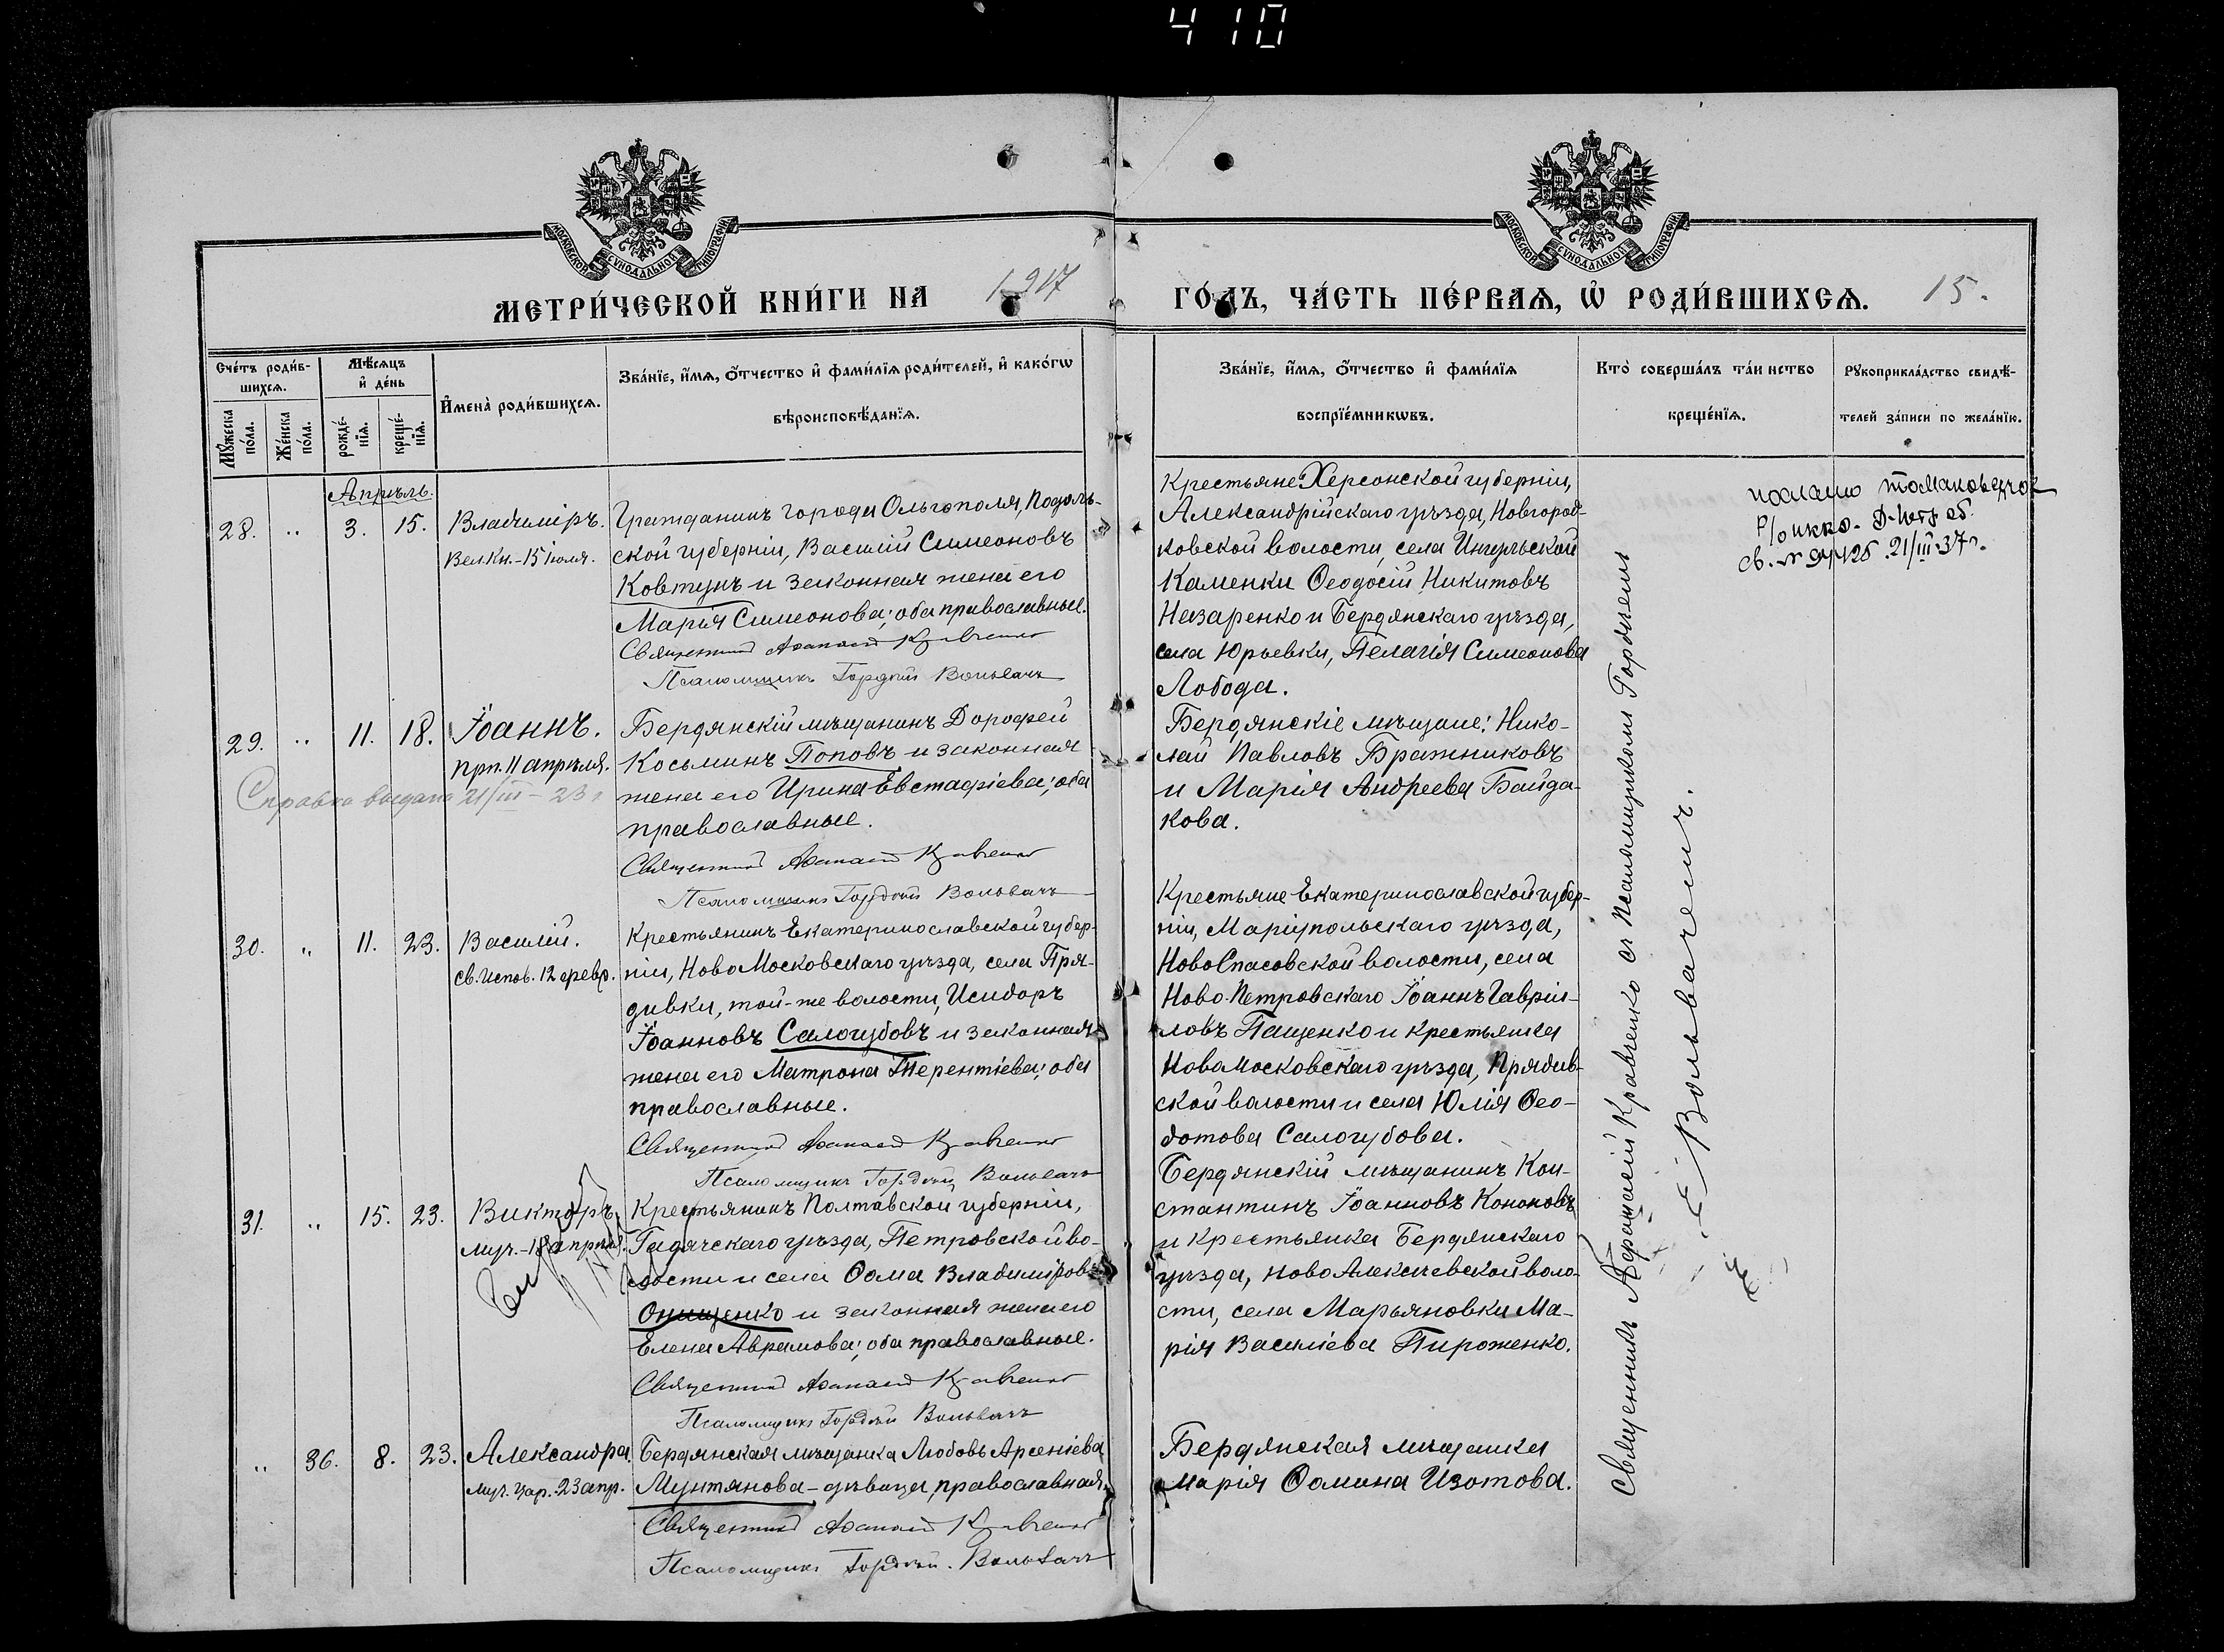 410
МОСКОВСКОЙ СѴНОДАЛЬНОЙ ТИПОГРАФІИ
МОСКОВСКОЙ СѴНОДАЛЬНОЙ ТИПОГРАФІИ
МЕТРИ́ЧЕСКОЙ КНИ́ГИ НА 1917
ГО́ДЪ, ЧА́СТЬ ПЕ́РВАѦ, Ѡ҆ РОДИ́ВШИХСѦ. 15.
Сче́тъ роди́в-
шихсѧ.
Мѣ́сѧцъ
и҆ де́нь
Мꙋ́жеска
по́ла.
Же́нска
по́ла.
рожде́-
нїѧ.
креще́-
нїѧ.
И҆мена̀ роди́вшихсѧ.
Зва́нїе, и҆́мѧ, ѻ҆́тчество и҆ фами́лїѧ роди́телей, и҆ како́гѡ
вѣроисповѣ́данїѧ.
Зва́нїе, и҆́мѧ, ѻ҆́тчество и҆ фами́лїѧ
воспрїе́мникѡвъ.
Кто̀ соверша́лъ та́инство
креще́нїѧ.
Рꙋкоприкла́дство свидѣ́-
телей за́писи по жела́нїю.
Апрѣль.
28. „ 3. 15. Владиміръ.
Вел.Кн.-15 іюля.
Гражданинъ города Ольгополя, Подоль-
ской губерніи, Василій Симеоновъ
Ковтунъ и законная жена его
Марія Симеонова; оба православные.
Священникъ Афанасій Кравченко
Псаломщикъ Гордій Вольвачъ
Крестьяне Херсонской губерніи,
Александрійскаго уѣзда, Новгород-
ковской волости, села Ингульской
Каменки Ѳеодосій Никитовъ
Назаренко и Бердянскаго уѣзда,
села Юрьевки, Пелагія Симеонова
Лобода.
св. № 21/III-37г.
29. „ 11. 18. Іоаннъ.
прп. 11 апрѣля.
Справка выдана 21/III - 23 г
Бердянскій мѣщанинъ Дорофей
Косьминъ Поповъ и законная
жена его Ирина Евстафіева; оба
православные.
Священникъ Афанасій Кравченко
Псаломщикъ Гордій Вольвачъ
Бердянскіе мѣщане: Нико-
лай Павловъ Бражниковъ
и Марія Андреева Байда-
кова.
30. „ 11. 23. Василій.
св. Испов. 12 февр.
Крестьянинъ Екатеринославской губер-
ніи, НовоМосковскаго уѣзда, села Пря-
дивки, той-же волости, Исидоръ
Іоанновъ Салогубовъ и законная
жена его Матрона Терентіева; оба
православные.
Священникъ Афанасій Кравченко
Псаломщикъ Гордій Вольвачъ
Крестьяне Екатеринославской губер-
ніи, Маріупольскаго уѣзда,
НовоСпасовской волости, села
Ново-Петровскаго Іоаннъ Гаврiи-
ловъ Пащенко и крестьянка
Новомосковскаго уѣзда, Прядив-
ской волости и села Юлія Ѳео-
дотова Салогубова.
31. „ 15. 23. Викторъ.
муч.-18 апрѣля.
Крестьянинъ Полтавской губерніи,
Гадячскаго уѣзда, Петровской во-
лости и села Ѳома Владиміровъ
Онищенко и законная жена его
Елена Аврамова; оба православные.
Священникъ Афанасій Кравченко
Псаломщикъ Гордій Вольвачъ
Бердянскій мѣщанинъ Кон-
стантинъ Іоанновъ Кононовъ
и крестьянка Бердянскаго
уѣзда, НовоАлексѣевской воло-
сти, села Марьяновки Ма-
рія Василіева Пироженко.
„ 36. 8. 23. Александра.
муч. цар. 23 апр.
Бердянская мѣщанка Любовь Арсеніева
Мунтянова - дѣвица, православная.
Священникъ Афанасій Кравченко
Псаломщикъ Гордій Вольвачъ
Бердянская мѣщанка
Марія Ѳомина Изотова.
Священникъ Афанасій Кравченко съ псаломщикомъ Гордіемъ
Вольвачемъ.